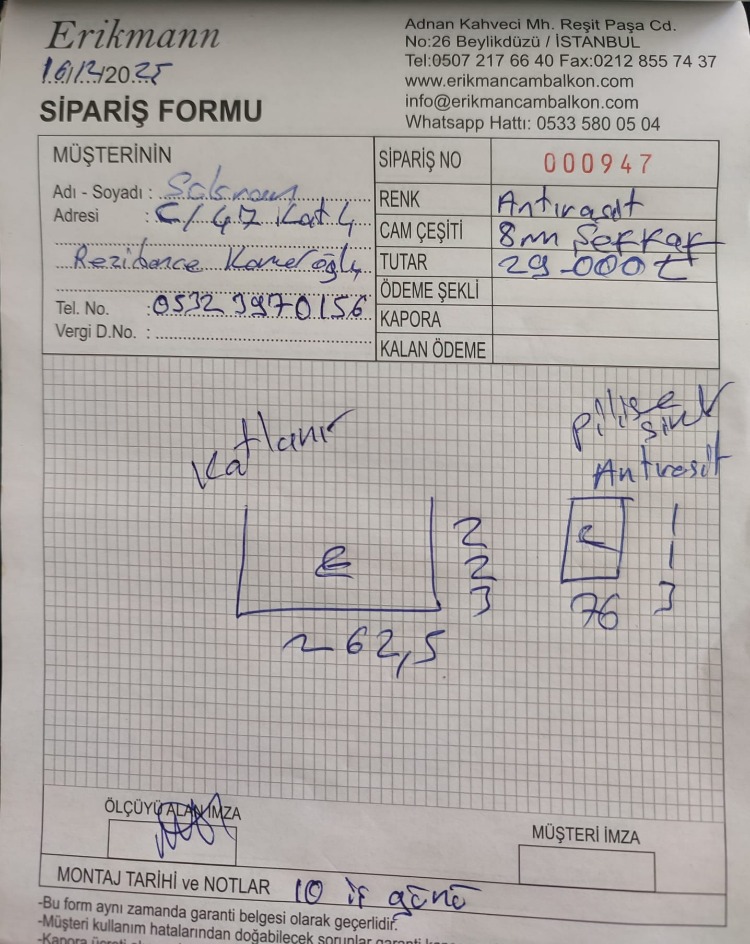 Erikmann
16/12/2025
SİPARİŞ FORMU
Adnan Kahveci Mh. Reşit Paşa Cd.
No:26 Beylikdüzü / İSTANBUL
Tel:0507 217 66 40 Fax:0212 855 74 37
www.erikmancambalkon.com
info@erikmancambalkon.com
Whatsapp Hattı: 0533 580 05 04
MÜŞTERİNİN
Adı - Soyadı :
Adresi : C/47 Kat 4
Rezidence
Tel. No. : 0532 3970156
Vergi D.No. :
SİPARİŞ NO 000947
RENK Antırasit
CAM ÇEŞİTİ 8mm Seffaf
TUTAR 29.000 ₺
ÖDEME ŞEKLİ
KAPORA
KALAN ÖDEME
Katlanır
E
2
2
3
262,5
Pilise
sink
Antırasit
1
1
3
76
ÖLÇÜYÜ ALAN İMZA
MÜŞTERİ İMZA
MONTAJ TARİHİ ve NOTLAR 10 iş günü
-Bu form aynı zamanda garanti belgesi olarak geçerlidir.
-Müşteri kullanım hatalarından doğabilecek sorunlar garanti
-Kapora